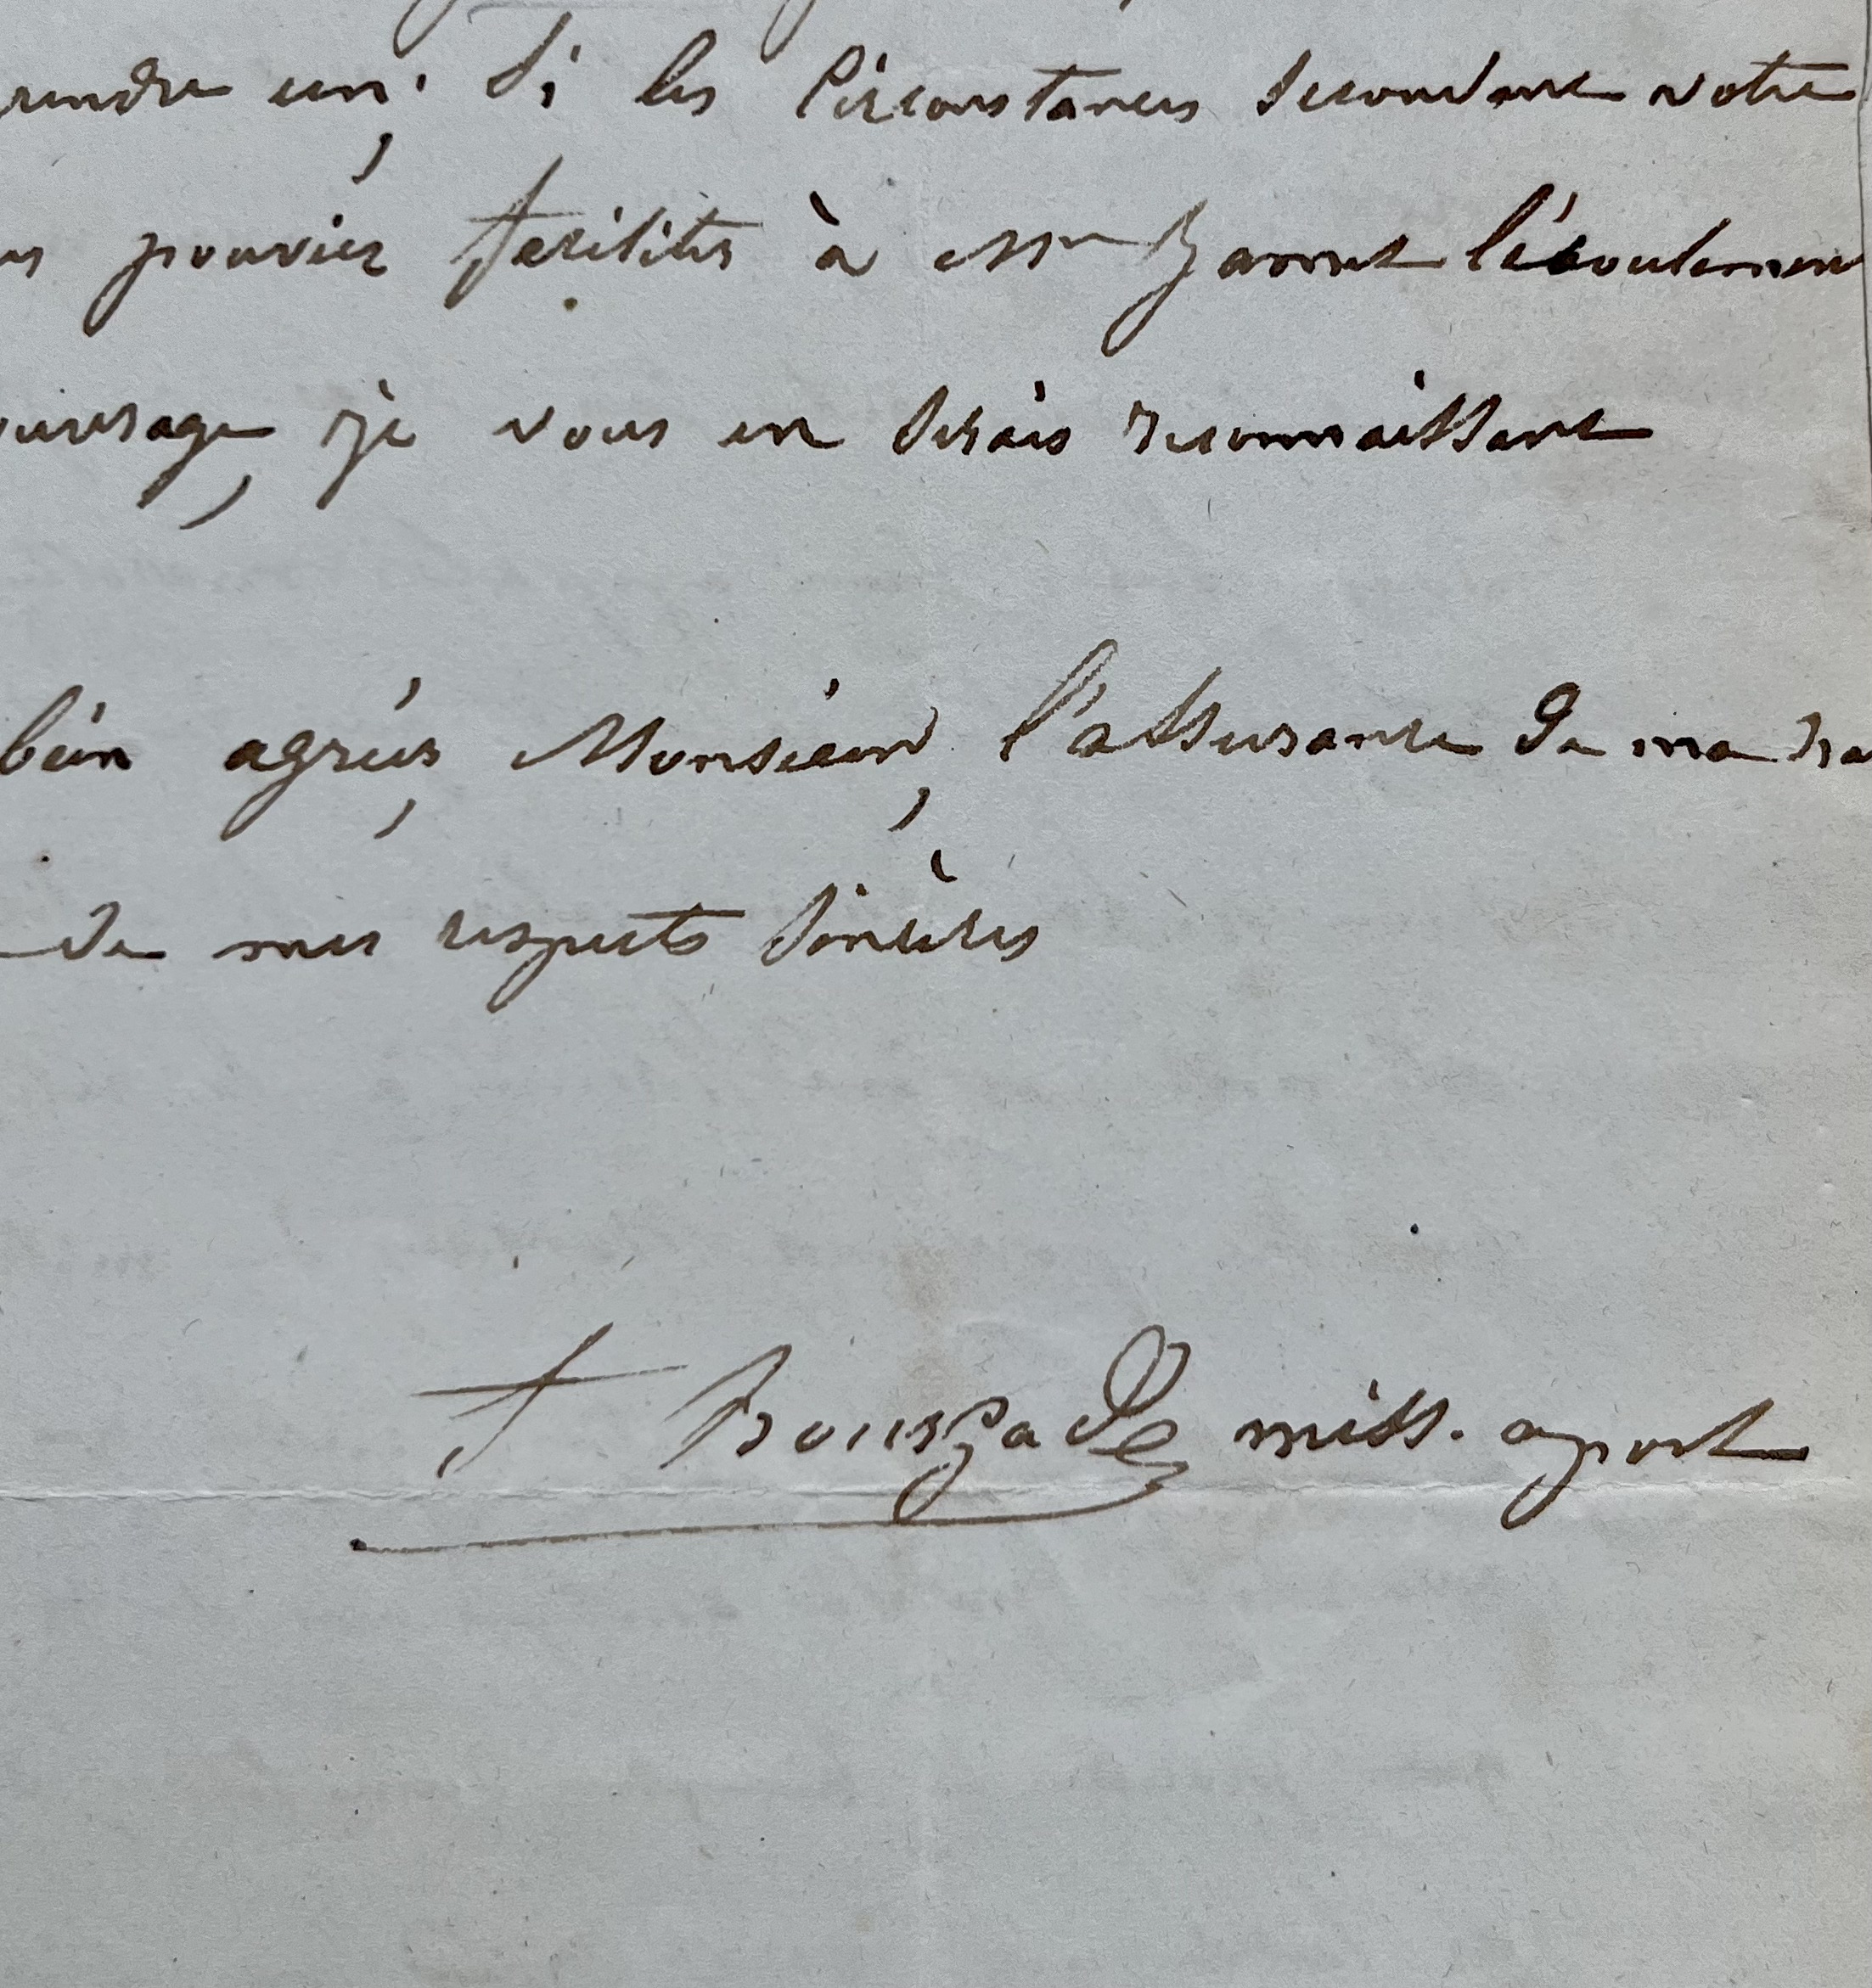 rendre un; Si les Circonstances secondent votre
pouviez faciliter à Mr l'écoulement
ouvrage, je vous en serais reconnaissant
bien agréer, Monsieur, l'assurance de ma
de mes respects sincères
miss. apost